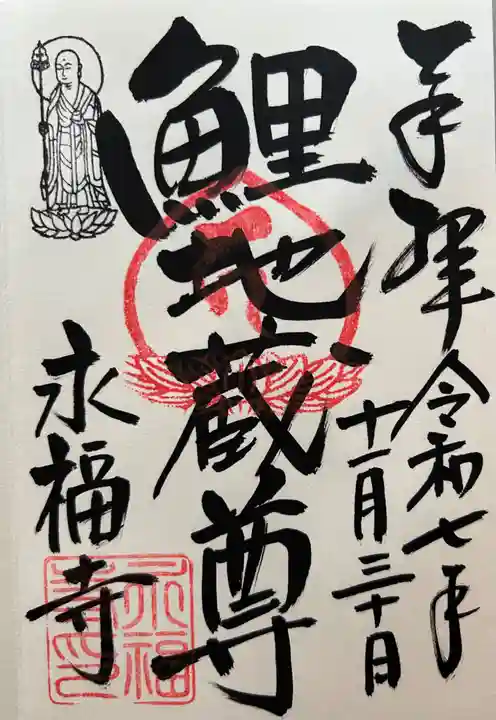 奉拝
令和七年
十一月三十日
鯉地蔵尊
永福寺
永福
寺印